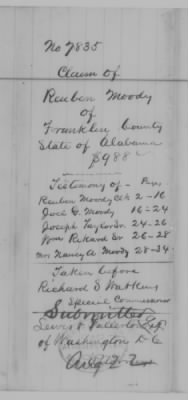 No 7835
Claim of
Reuben Moody
of
Franklin County
State of Alabama
$988
Testimony of - Pages
Reuben Moody Clt 2-16
Joel G. Moody 16-24
Joseph Taylor Sr. 24-26
Wm Rikard Sr 26-28
Mrs Nancy A Moody 28-34
Taken before
Richard S Watkins
Special Commissioner
Submitted
Lewis & Fullerton
of Washington D C